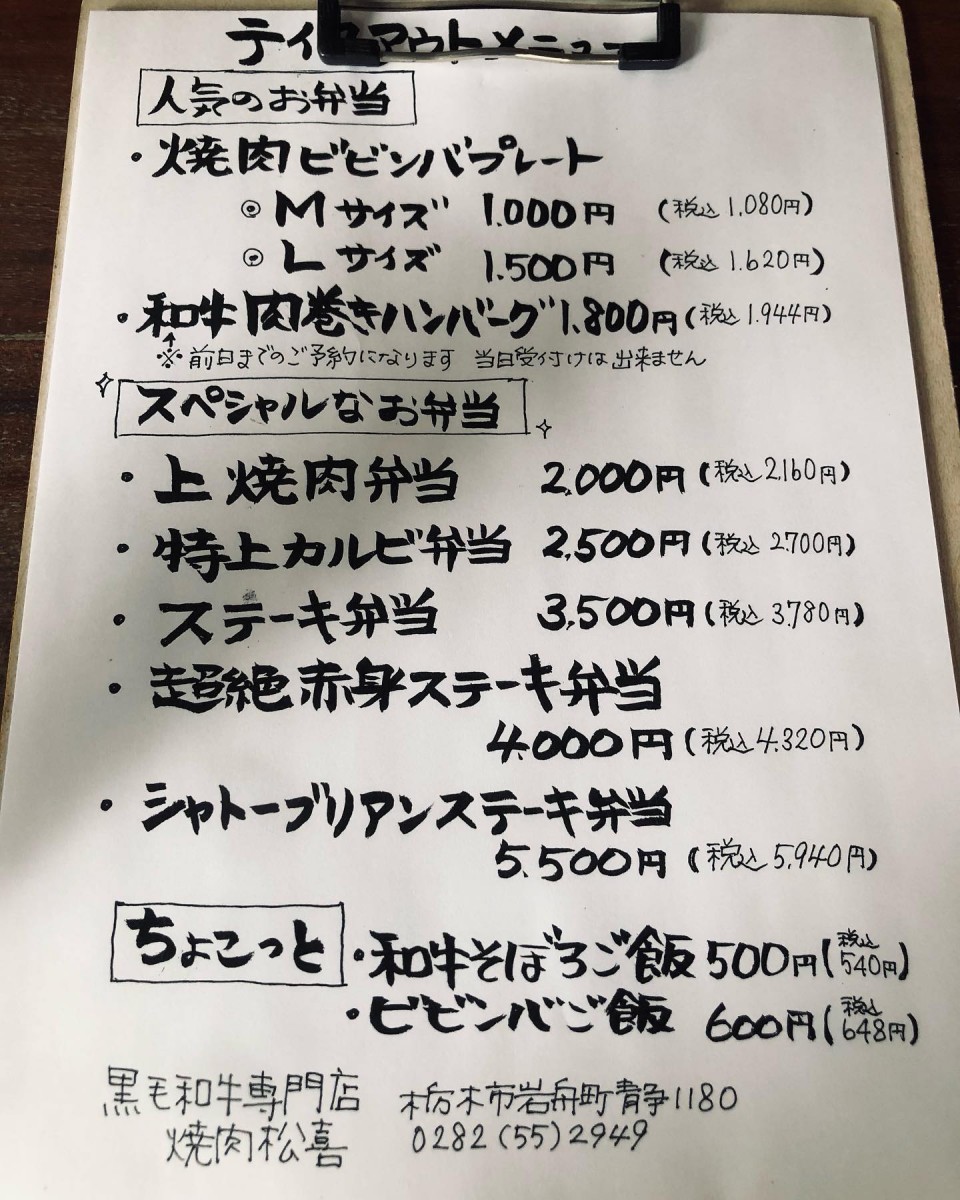 テイクアウトメニュー
人気のお弁当
・焼肉ビビンバプレート
◎Mサイズ 1.000円 (税込1.080円)
◎Lサイズ 1.500円 (税込1.620円)
・和牛肉巻きハンバーグ 1.800円(税込1.944円)
↑
※前日までのご予約になります 当日受付けは出来ません
スペシャルなお弁当
・上焼肉弁当 2.000円(税込2.160円)
・特上カルビ弁当 2.500円(税込2.700円)
・ステーキ弁当 3.500円(税込3.780円)
・超絶赤身ステーキ弁当
4.000円(税込4.320円)
・シャトーブリアンステーキ弁当
5.500円(税込5.940円)
ちょこっと ・和牛そぼろご飯 500円(税込540円)
・ビビンバご飯 600円(税込648円)
黒毛和牛専門店 栃木市岩舟町静1180
焼肉松喜 0282(55)2949